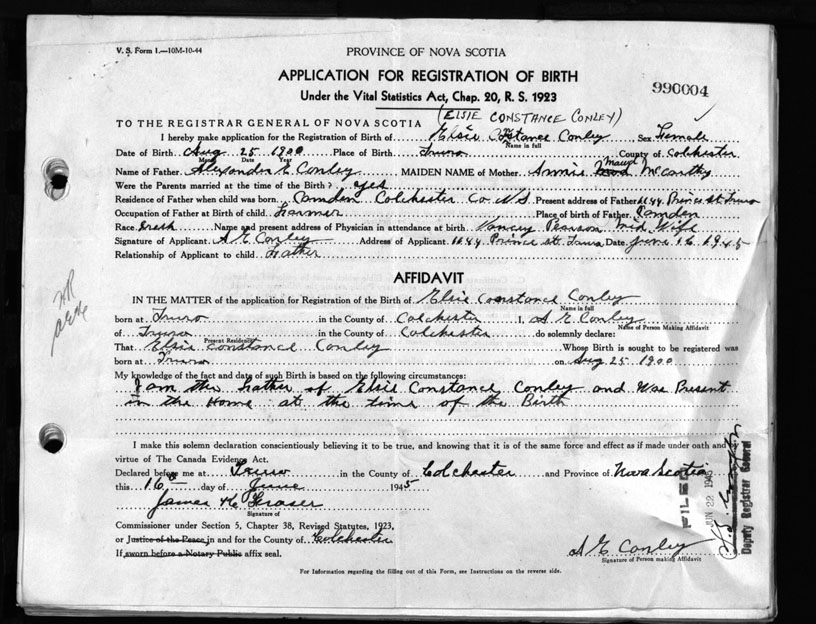 V. S. Form 1.—10M-10-44
PROVINCE OF NOVA SCOTIA
APPLICATION FOR REGISTRATION OF BIRTH
990004
Under the Vital Statistics Act, Chap. 20, R. S. 1923
(ELSIE CONSTANCE CONLEY)
TO THE REGISTRAR GENERAL OF NOVA SCOTIA
I hereby make application for the Registration of Birth of Elsie Constance Conley Sex Female
Name in full
Date of Birth Aug 25 1900 Place of Birth Truro County of Colchester
Month Date Year
Name of Father Alexander E Conley MAIDEN NAME of Mother Annie Maud McCarthy
Were the Parents married at the time of the Birth? yes
Residence of Father when child was born. Camden Colchester Co N S. Present address of Father Prince St Truro
Occupation of Father at Birth of child. Farmer Place of birth of Father Camden
Race. Name and present address of Physician in attendance at birth Nancy Pearson Mid Wife
Signature of Applicant. A E Conley Address of Applicant. Prince St. Truro Date June 16 1945
Relationship of Applicant to child. Father
AFFIDAVIT
IN THE MATTER of the application for Registration of the Birth of Elsie Constance Conley
Name in full
born at Truro in the County of Colchester I, A E Conley
Name of Person Making Affidavit
of Truro in the County of Colchester do solemnly declare:
Present Residence
That Elsie Constance Conley Whose Birth is sought to be registered was
born at Truro on Aug 25 1900
My knowledge of the fact and date of such Birth is based on the following circumstances:
I am the Father of Elsie Constance Conley and Was Present
in the Home at the time of the Birth
I make this solemn declaration conscientiously believing it to be true, and knowing that it is of the same force and effect as if made under oath and by
virtue of The Canada Evidence Act.
Declared before me at Truro in the County of Colchester and Province of Nova Scotia
this 16 day of June 1945
James H Fraser
Signature of
Commissioner under Section 5, Chapter 38, Revised Statutes, 1923,
or Justice of the Peace in and for the County of Colchester
If sworn before a Notary Public affix seal.
A E Conley
Signature of Person making Affidavit
For Information regarding the filling out of this Form, see Instructions on the reverse side.
FILED
JUN 22 1945
Deputy Registrar General